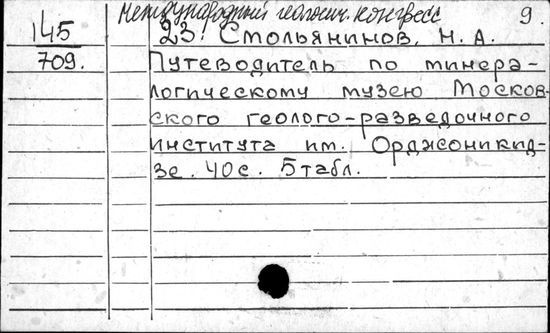 Международный геологич. конгресс 9.
145 23. Смольянинов, Н. А.
709. Путеводитель по минера-
логическому музею Москов-
ского геолого-разведочного
института им. Орджоникид-
зе. 40 с. 5 табл.